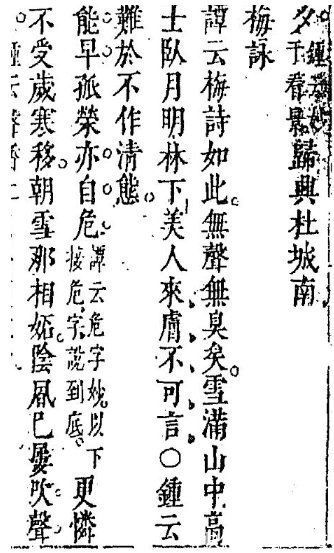 夕于春影歸典杜城南
鍾云妙
梅詠
譚云梅詩如此無聲無臭矣雪滿山中高
士臥月明林下美人來膚不可言○鍾云
難於不作清態
能早孤榮亦自危
譚云危字妙以下
接危字說到底
更憐
不受歲寒移朝雪那相妬陰風已屢吹聲